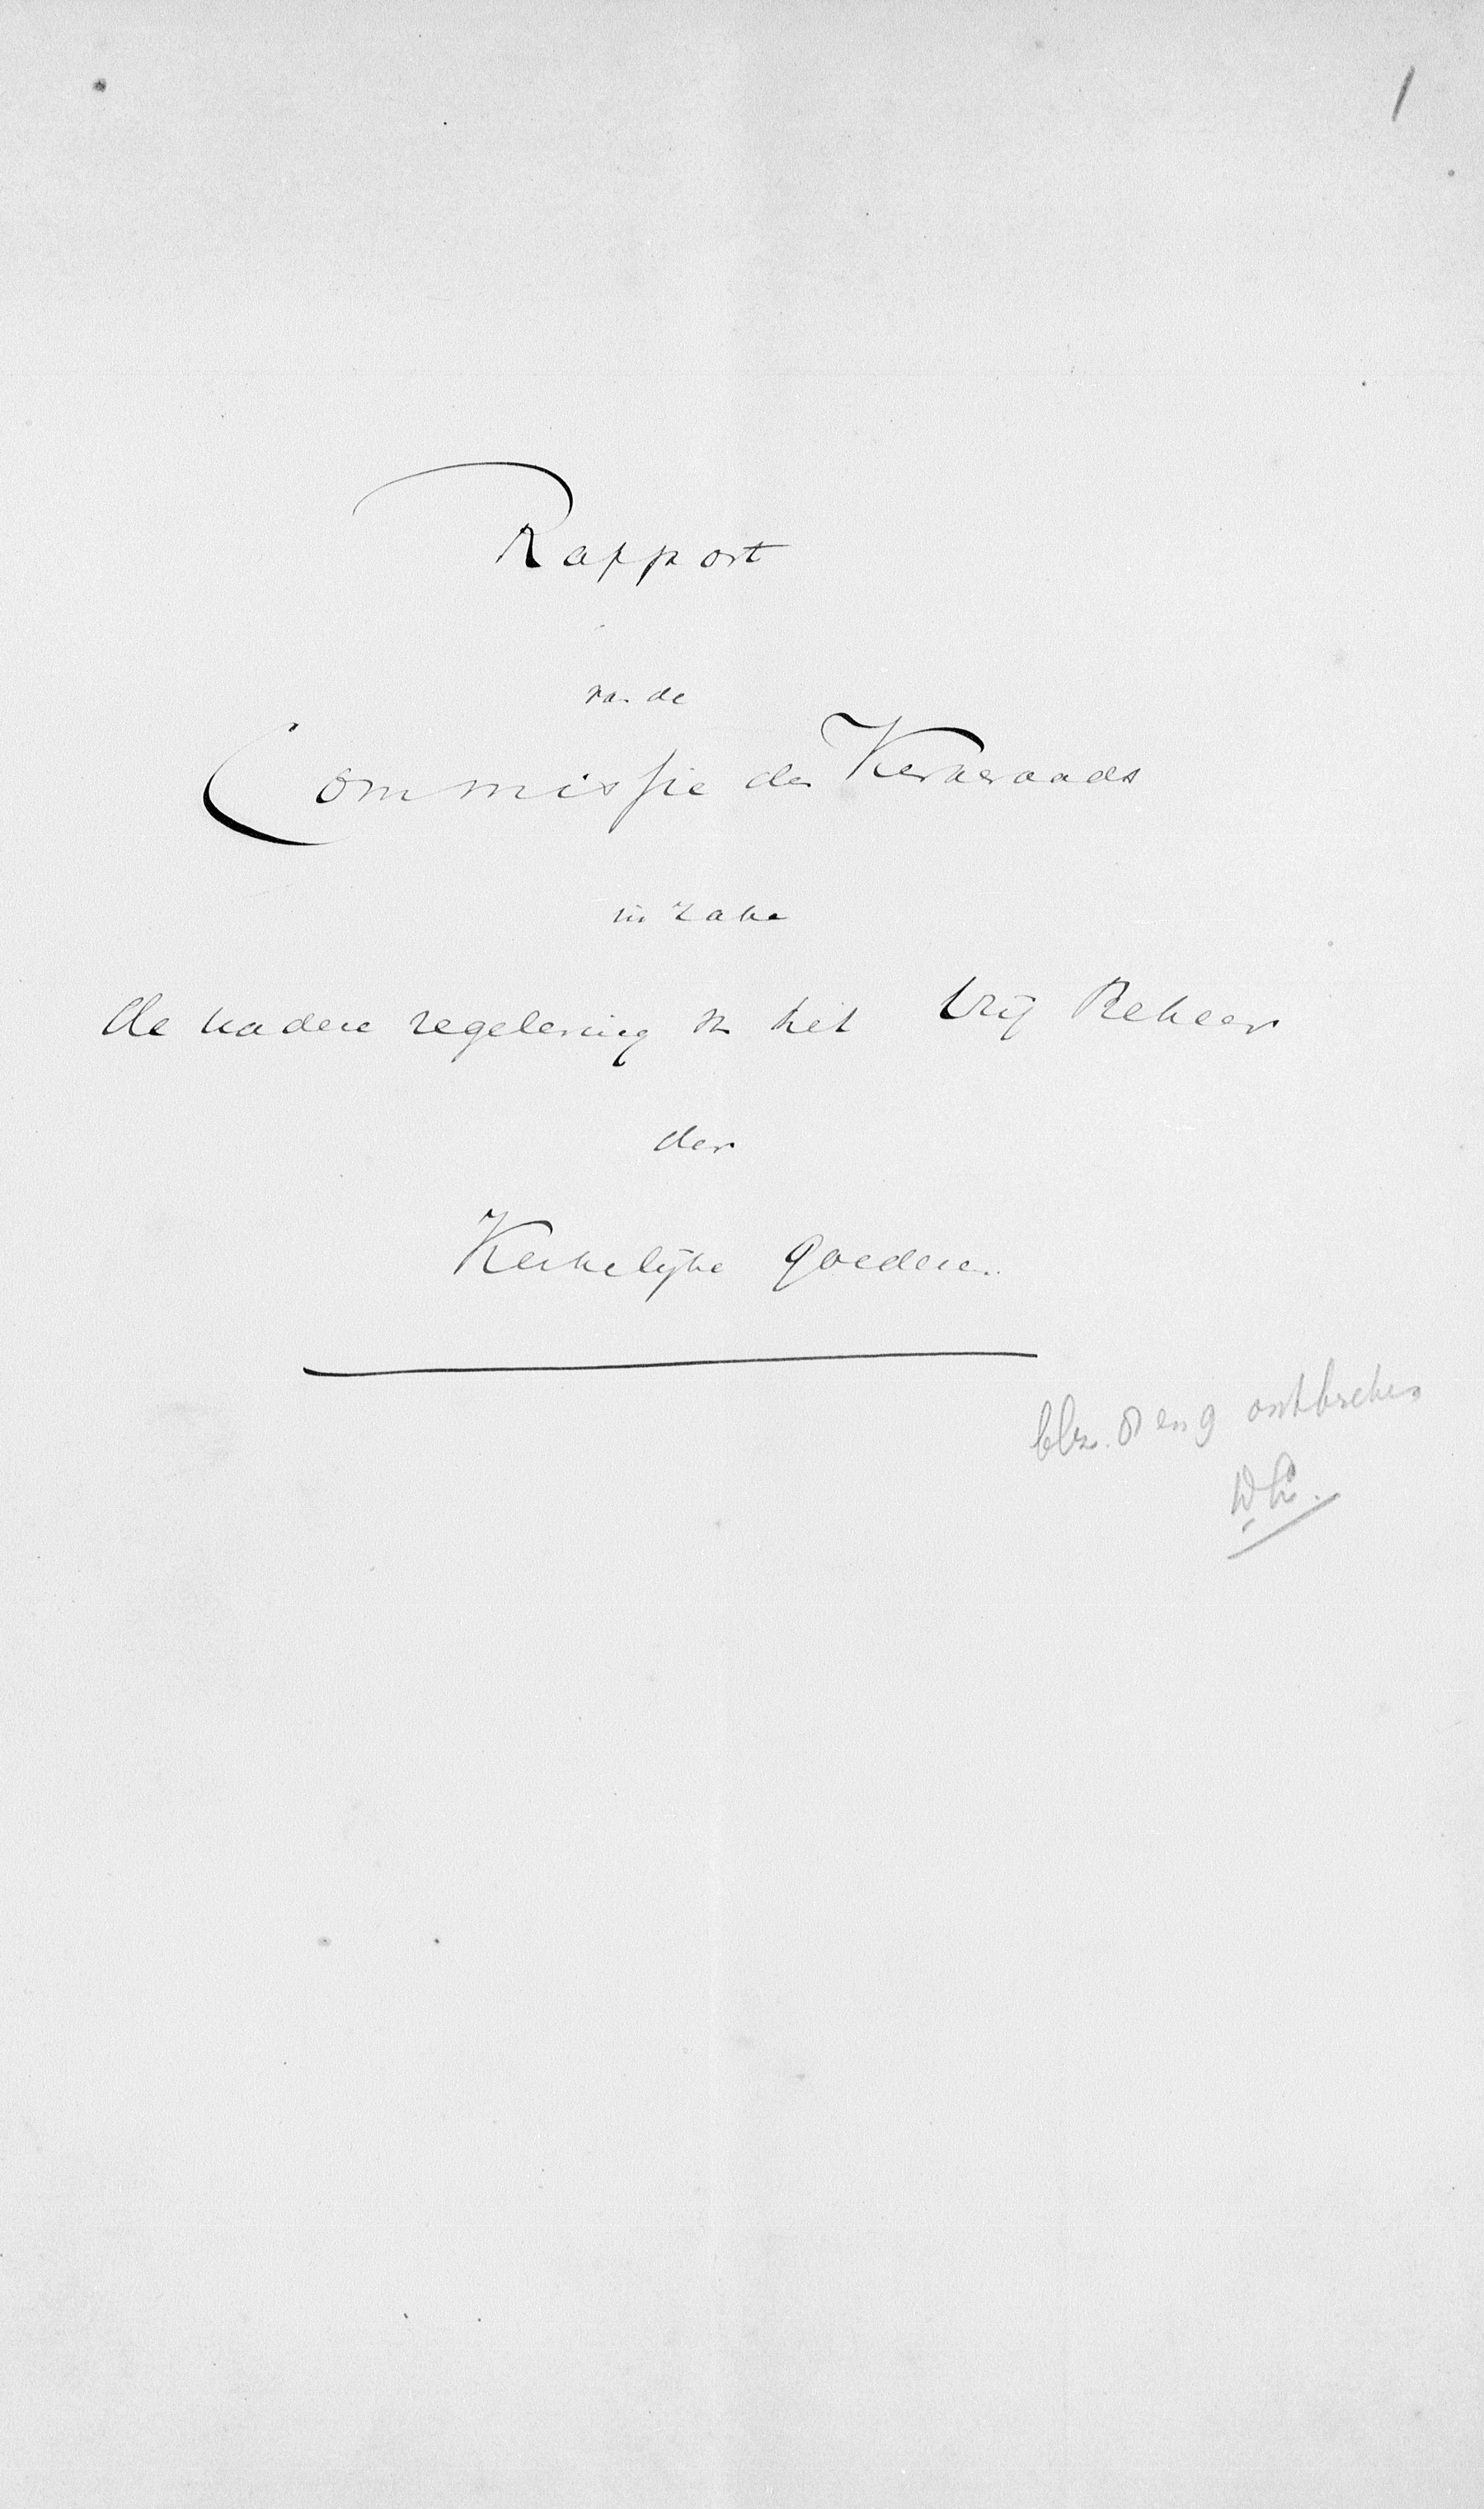 1
Rapport
van de
Commissie des Kerkeraads
in zake
de nadere regeling v. het Vrij Beheer
der
Kerkelijke goederen.
blz. 8 en 9 ontbreken